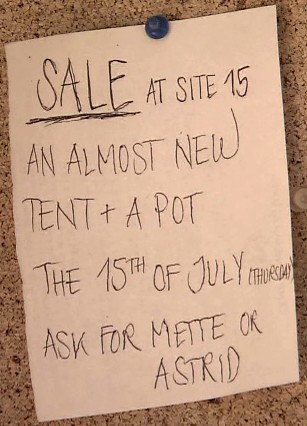 SALE AT SITE 15
AN ALMOST NEW
TENT + A POT
THE 15TH OF JULY (THURSDAY)
ASK FOR METTE OR
ASTRID